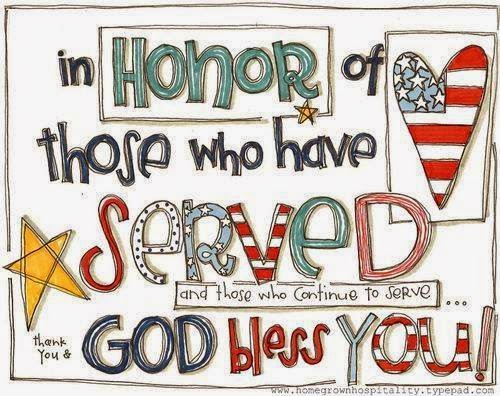 in HONOR of
those who have
SERVED
and those who continue to serve ...
thank
you &
GOD bless YOU!
www.homegrownhospitality.typepad.com